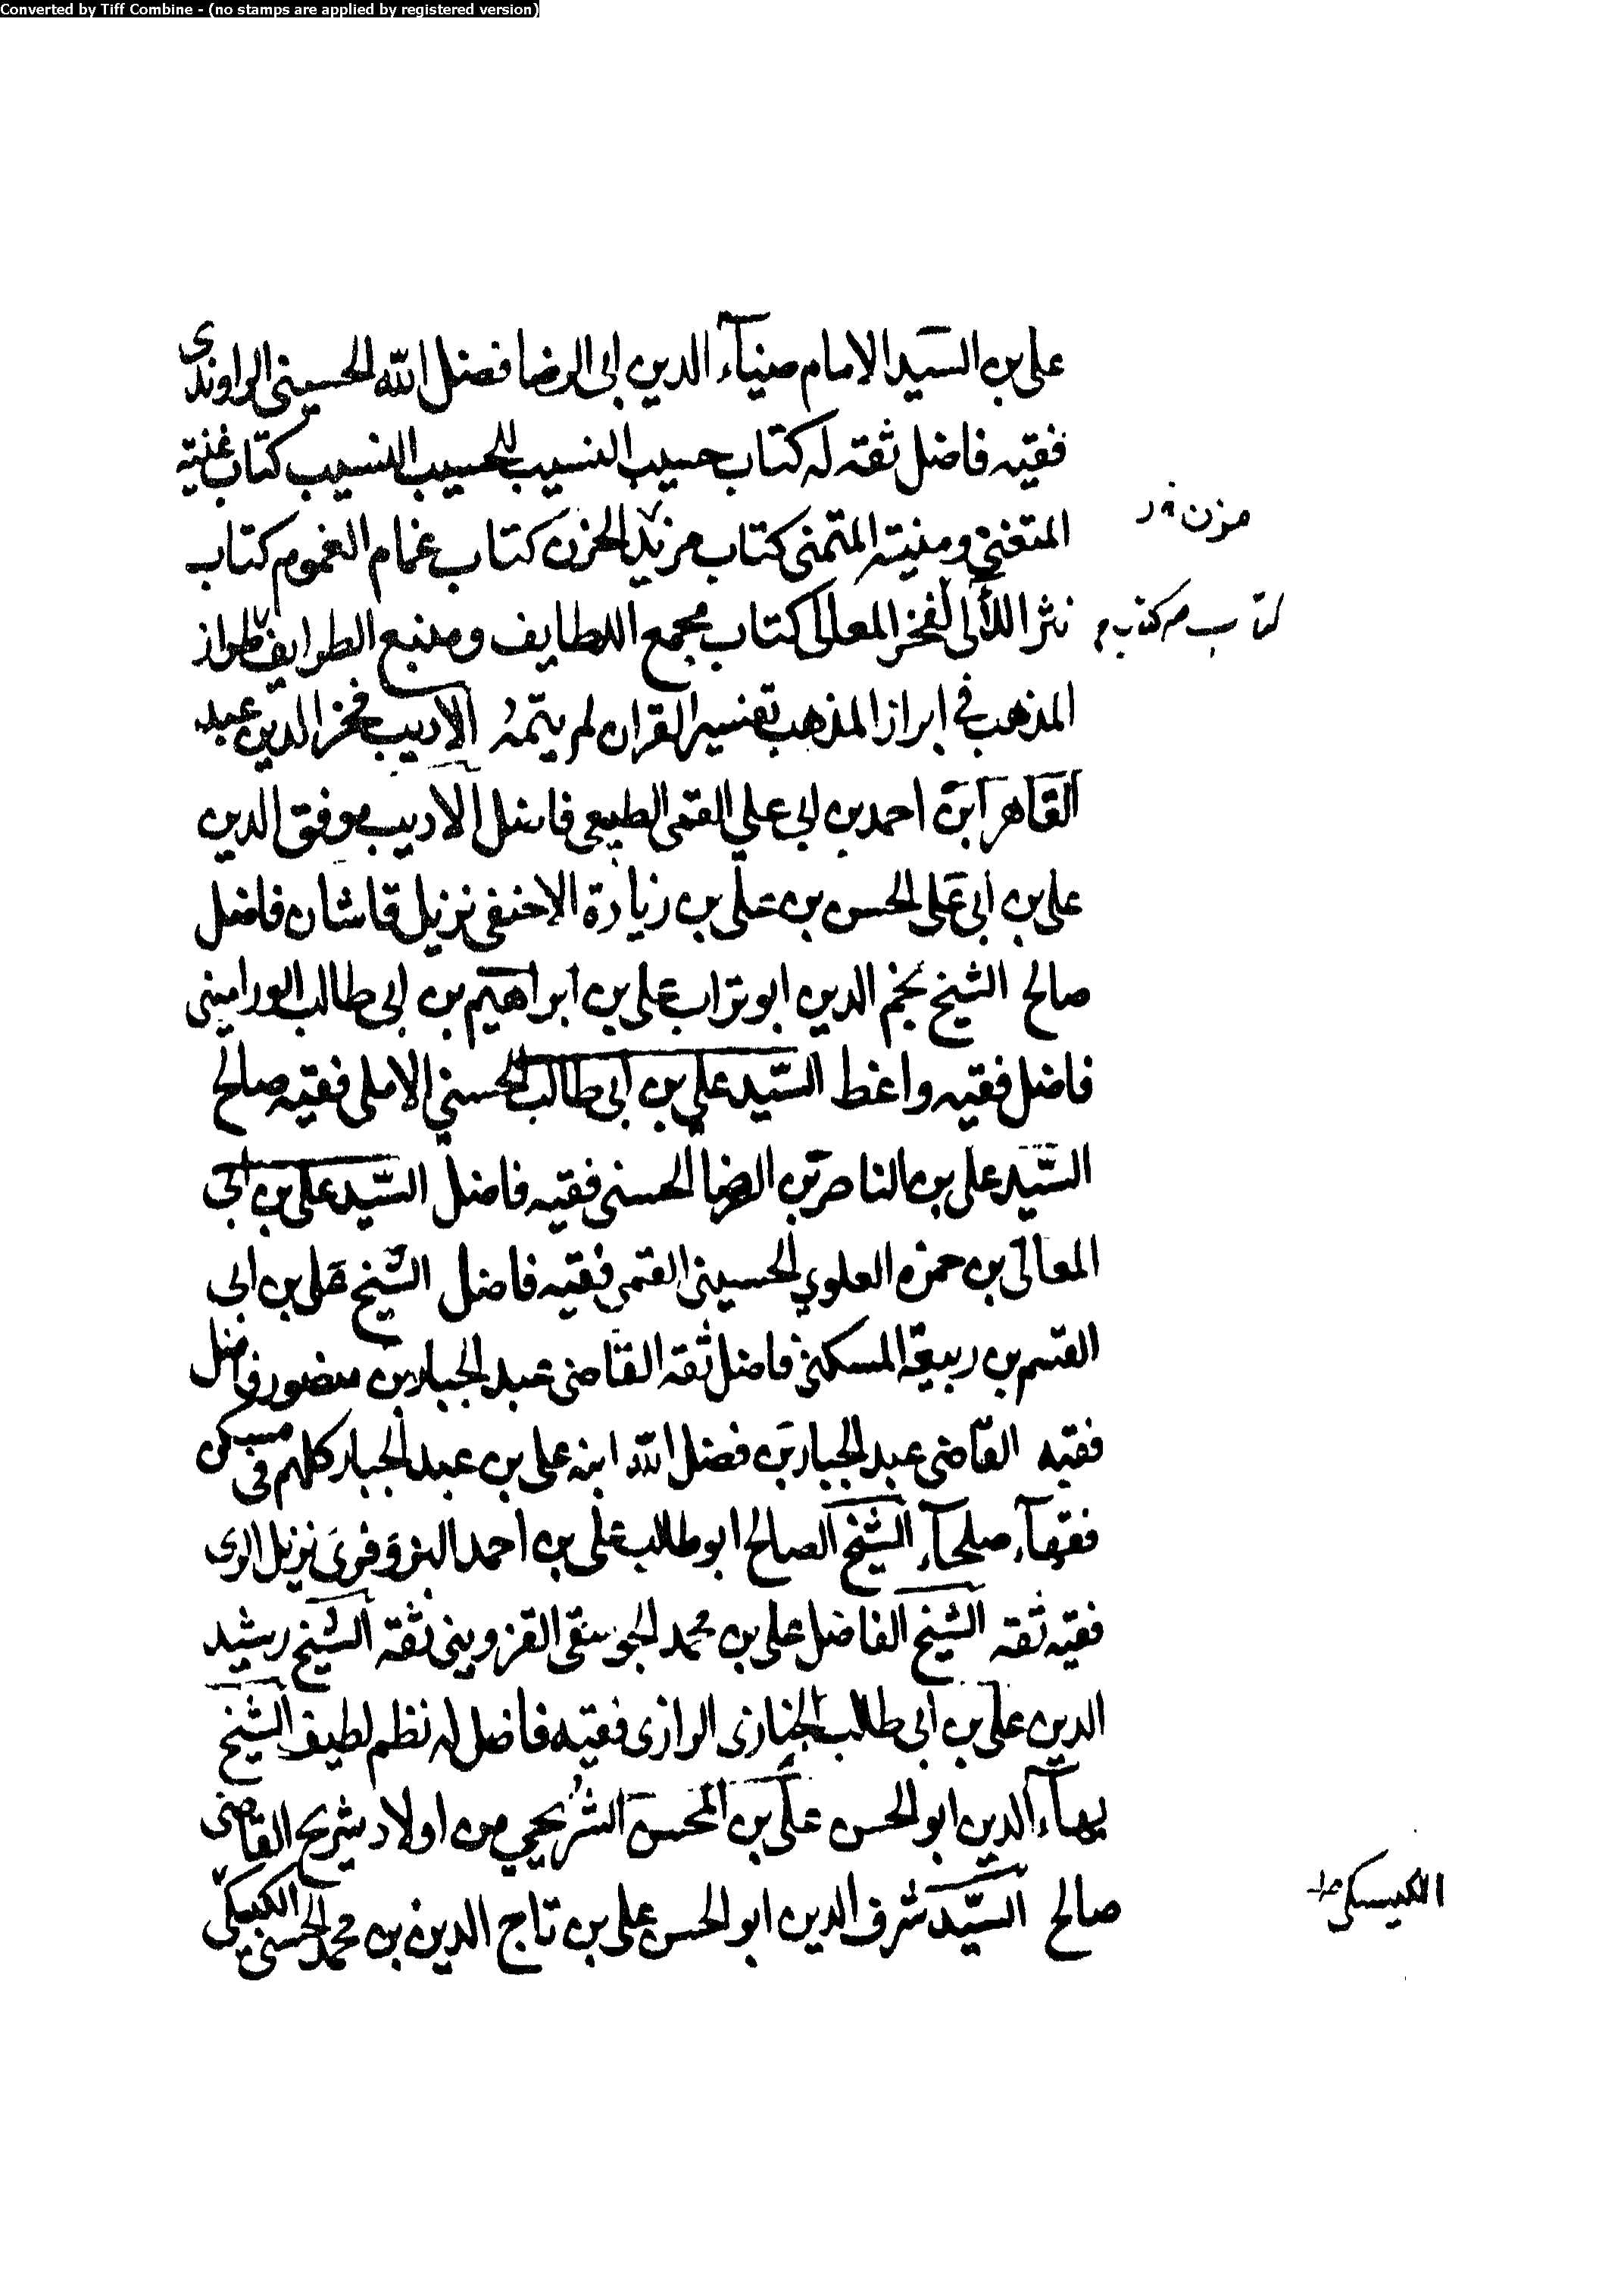 Converted by Tiff Combine - (no stamps are applied by registered version)
علي بن السيد الامام ضياء الدين ابي الرضا فضل الله الحسيني الراوندي
فقيه فاضل ثقه له كتاب حسيب النسيب للحسيب النسيب كتاب غنية
المتغني ومنية المتمني كتاب مزيد الحزن كتاب غمام الغموم كتاب
مزن
نثر اللآلي لفخر المعالي كتاب مجمع اللطايف ومنبع الطرايف طراز
كتاب
المذهب في ابراز المذهب تفسير القران لم يتمه الاديب فخر الدين عبد
القاهر ابن احمد بن ابي علي القمي الطبيعي فاضل الاديب موفق الدين
علي بن أبي علي الحسن بن علي بن زيارة الاخنفي نزيل قاشان فاضل
صالح الشيخ نجم الدين ابو تراب علي بن ابراهيم بن ابي طالب الوراميني
فاضل فقيه واعظ السيد علي بن ابي طالب الحسني الاملي فقيه صالح
السيد علي بن الناصر بن الرضا الحسني فقيه فاضل السيد علي بن ابي
المعالي بن حمزه العلوي الحسيني القمي فقيه فاضل الشيخ علي بن ابي
القسم بن ربيعة المسكني فاضل ثقه القاضي عبد الجبار بن منصور فاضل
فقيه القاضي عبد الجبار بن فضل الله ابنه علي بن عبد الجبار كلهم في مسكن
فقهآء صلحآء الشيخ الصالح ابو طالب علي بن احمد البزوفري نزيل الري
فقيه ثقه الشيخ الفاضل علي بن محمد الجوسقي القزويني ثقة الشيخ رشيد
الدين علي بن ابي طالب الخبازي الرازي فقيه فاضل له نظم لطيف الشيخ
بهآء الدين ابو الحسن علي بن المحسن الشريحي من اولاد شريح القاضي
صالح السيد شرف الدين ابو الحسن علي بن تاج الدين بن محمد الحسني الكيكي
الكيسكي ط